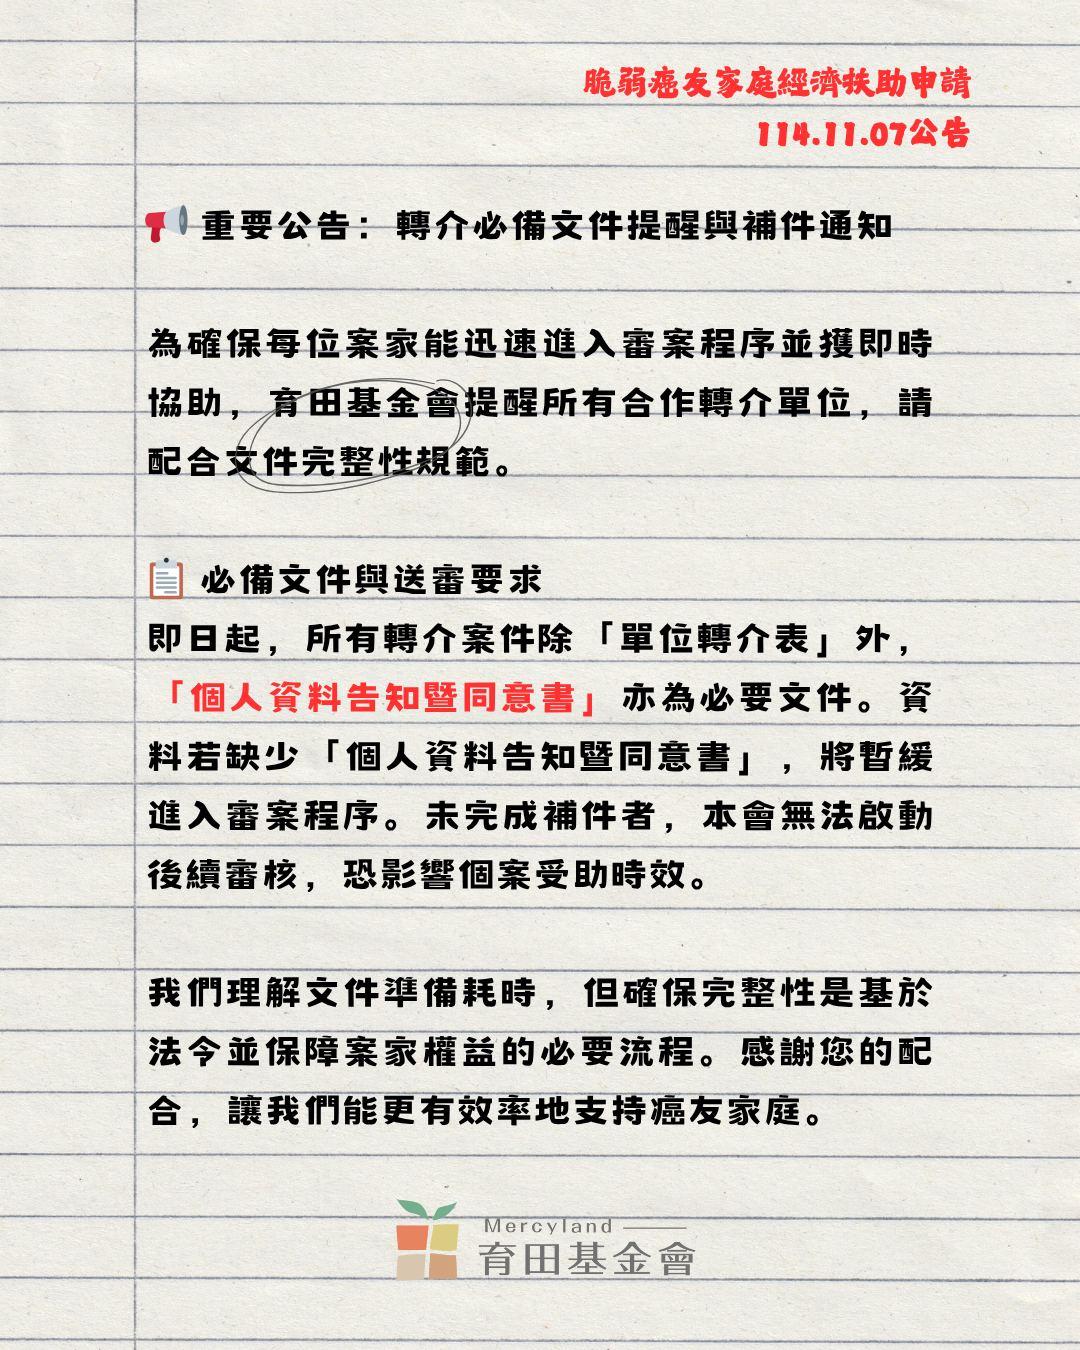 脆弱癌友家庭經濟扶助申請
114.11.07公告
重要公告：轉介必備文件提醒與補件通知
為確保每位案家能迅速進入審案程序並獲即時
協助，育田基金會提醒所有合作轉介單位，請
配合文件完整性規範。
必備文件與送審要求
即日起，所有轉介案件除「單位轉介表」外，
「個人資料告知暨同意書」亦為必要文件。資
料若缺少「個人資料告知暨同意書」，將暫緩
進入審案程序。未完成補件者，本會無法啟動
後續審核，恐影響個案受助時效。
我們理解文件準備耗時，但確保完整性是基於
法令並保障案家權益的必要流程。感謝您的配
合，讓我們能更有效率地支持癌友家庭。
Mercyland
育田基金會